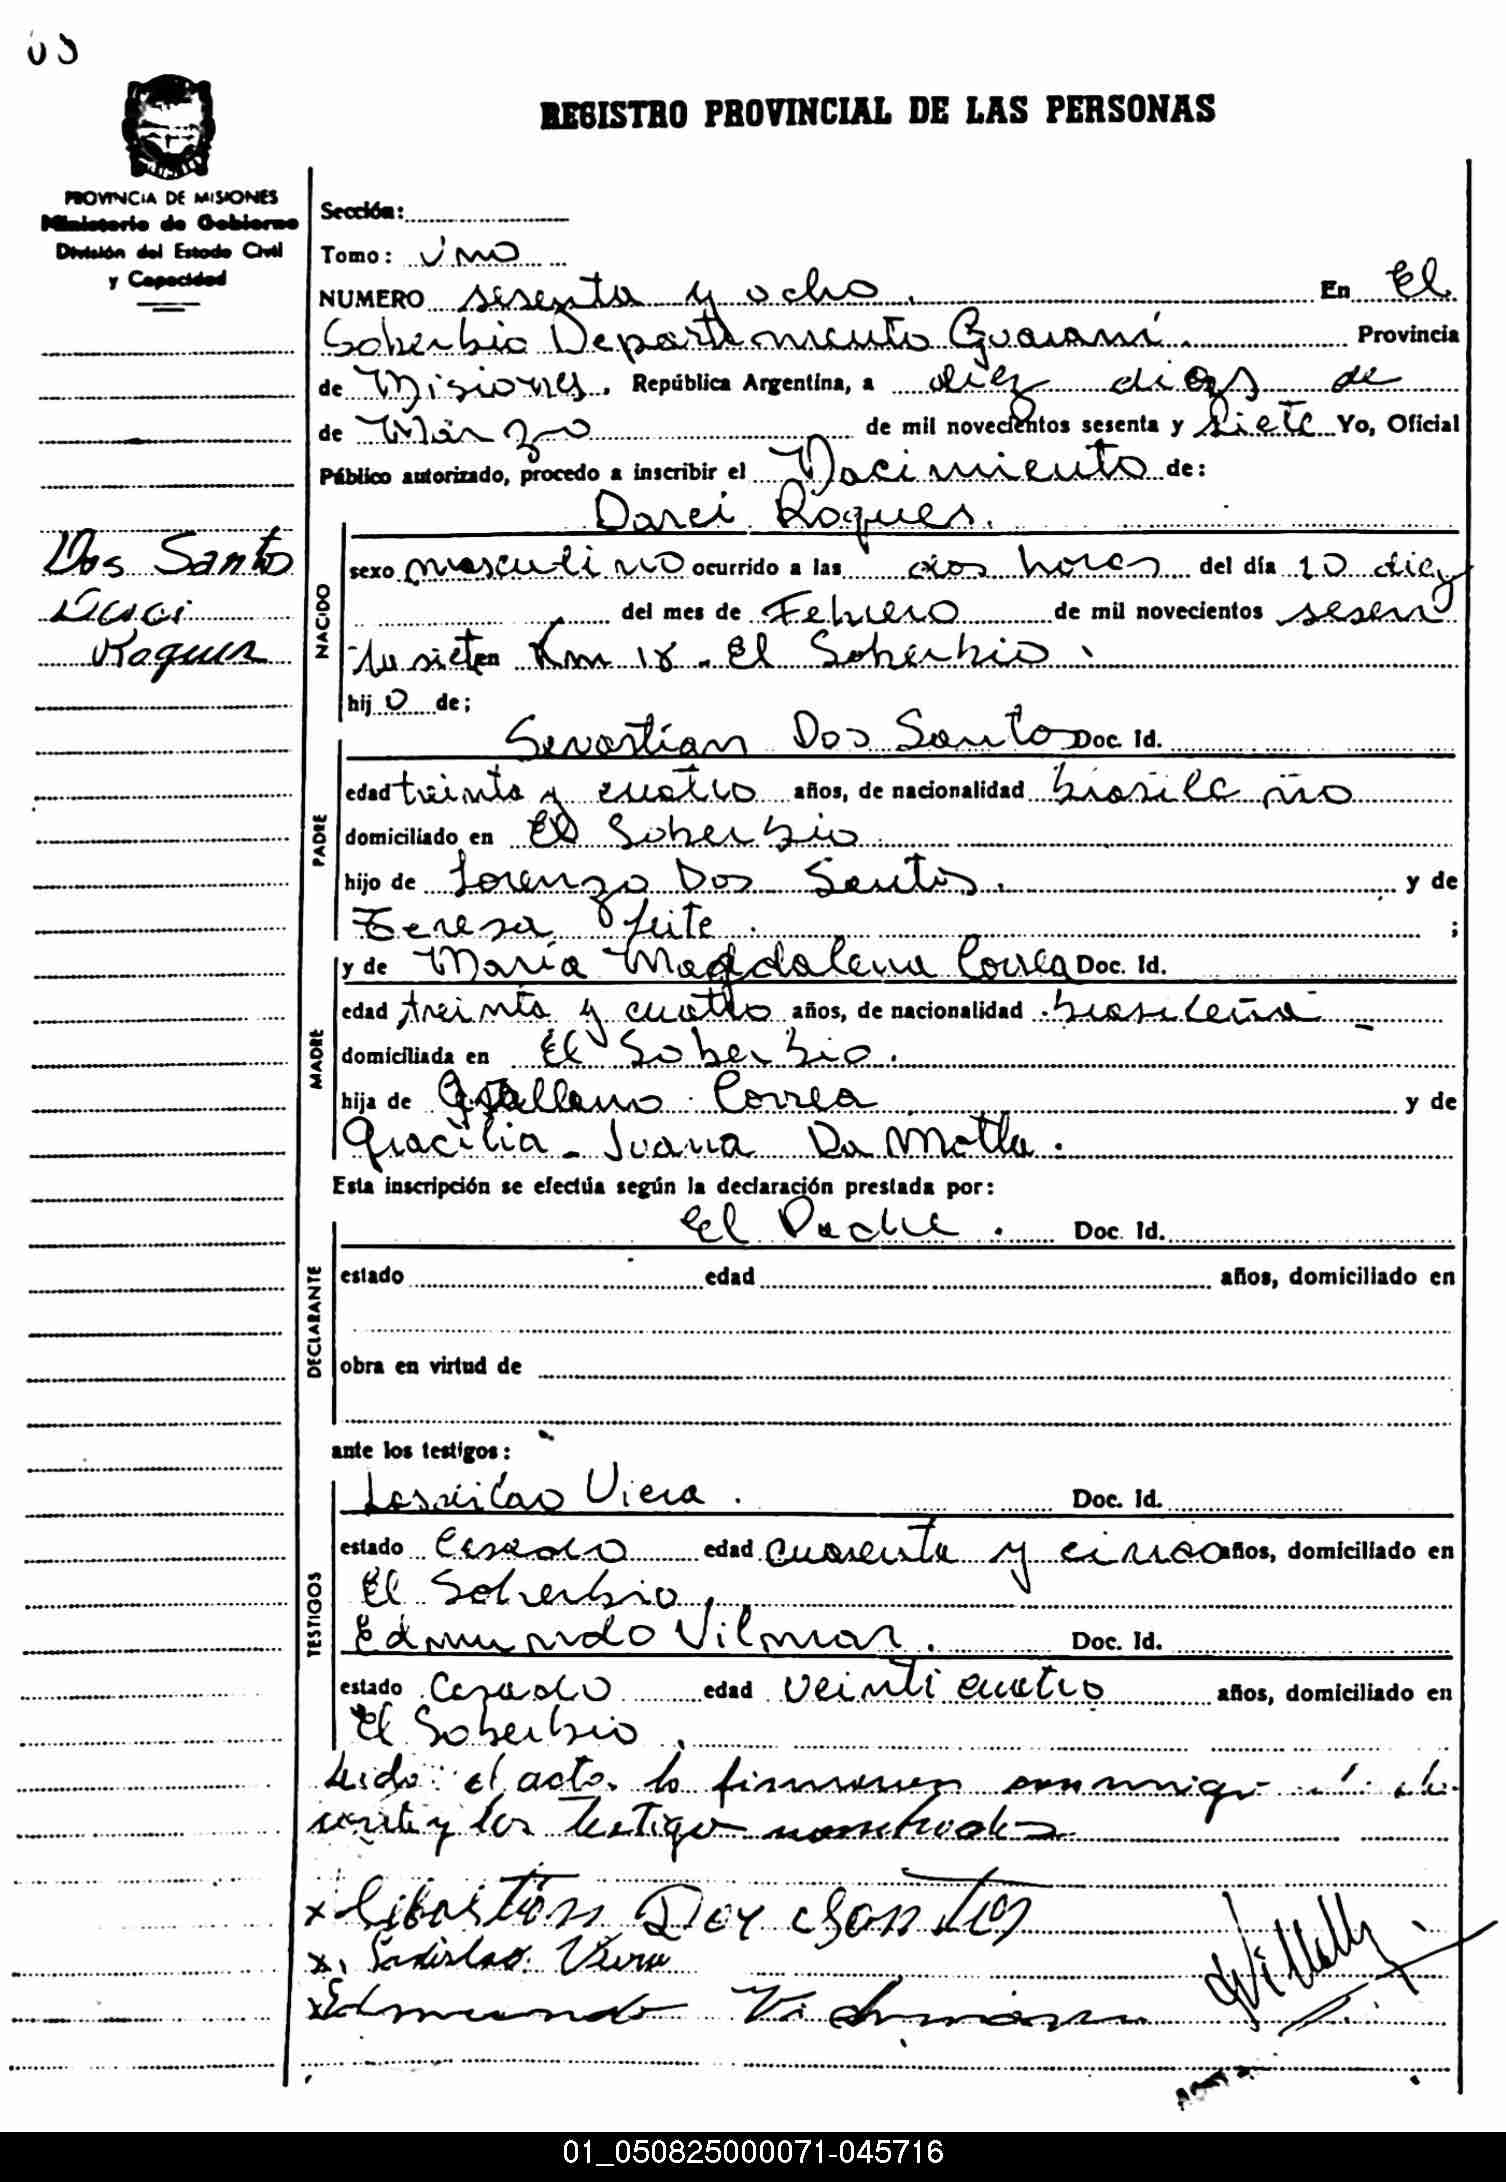 REGISTRO PROVINCIAL DE LAS PERSONAS
PROVINCIA DE MISIONES
Ministerio de Gobierno
División del Estado Civil
y Capacidad
Sección:
Tomo: uno
NUMERO sesenta y ocho. En El
Soberbio Departamento Guaraní. Provincia
de Misiones. República Argentina, a diez dias de
de Marzo de mil novecientos sesenta y siete Yo, Oficial
Público autorizado, procedo a inscribir el Nacimiento de:
Darci Roques.
Dos Santo
Darci
Roques
NACIDO
sexo masculino ocurrido a las dos horas del día 10 diez
del mes de Febrero de mil novecientos sesen
ta siete en Km 18. El Soberbio.
hijo de;
PADRE
Sevastian Dos Santos Doc. Id.
edad treinta y cuatro años, de nacionalidad brasileño
domiciliado en El Soberbio.
hijo de Lorenzo Dos Santos. y de
Teresa Leite. ;
MADRE
y de Maria Magdalena Correa Doc. Id.
edad treinta y cuatro años, de nacionalidad brasileña
domiciliada en El Soberbio.
hija de Correa y de
Gracilia - Juana Da Motta.
Esta inscripción se efectúa según la declaración prestada por:
DECLARANTE
El Padre. Doc. Id.
estado edad años, domiciliado en
obra en virtud de
ante los testigos:
TESTIGOS
Viera. Doc. Id.
estado Casado edad cuarenta y cinco años, domiciliado en
El Soberbio.
Edmundo Vilmar. Doc. Id.
estado Casado edad veinticuatro años, domiciliado en
El Soberbio.
Leido el acto, lo firmaron conmigo
y los testigos nombrados
x Sibastión Doy Santos
x. Ladislao Viera
x Edmundo
01_050825000071-045716